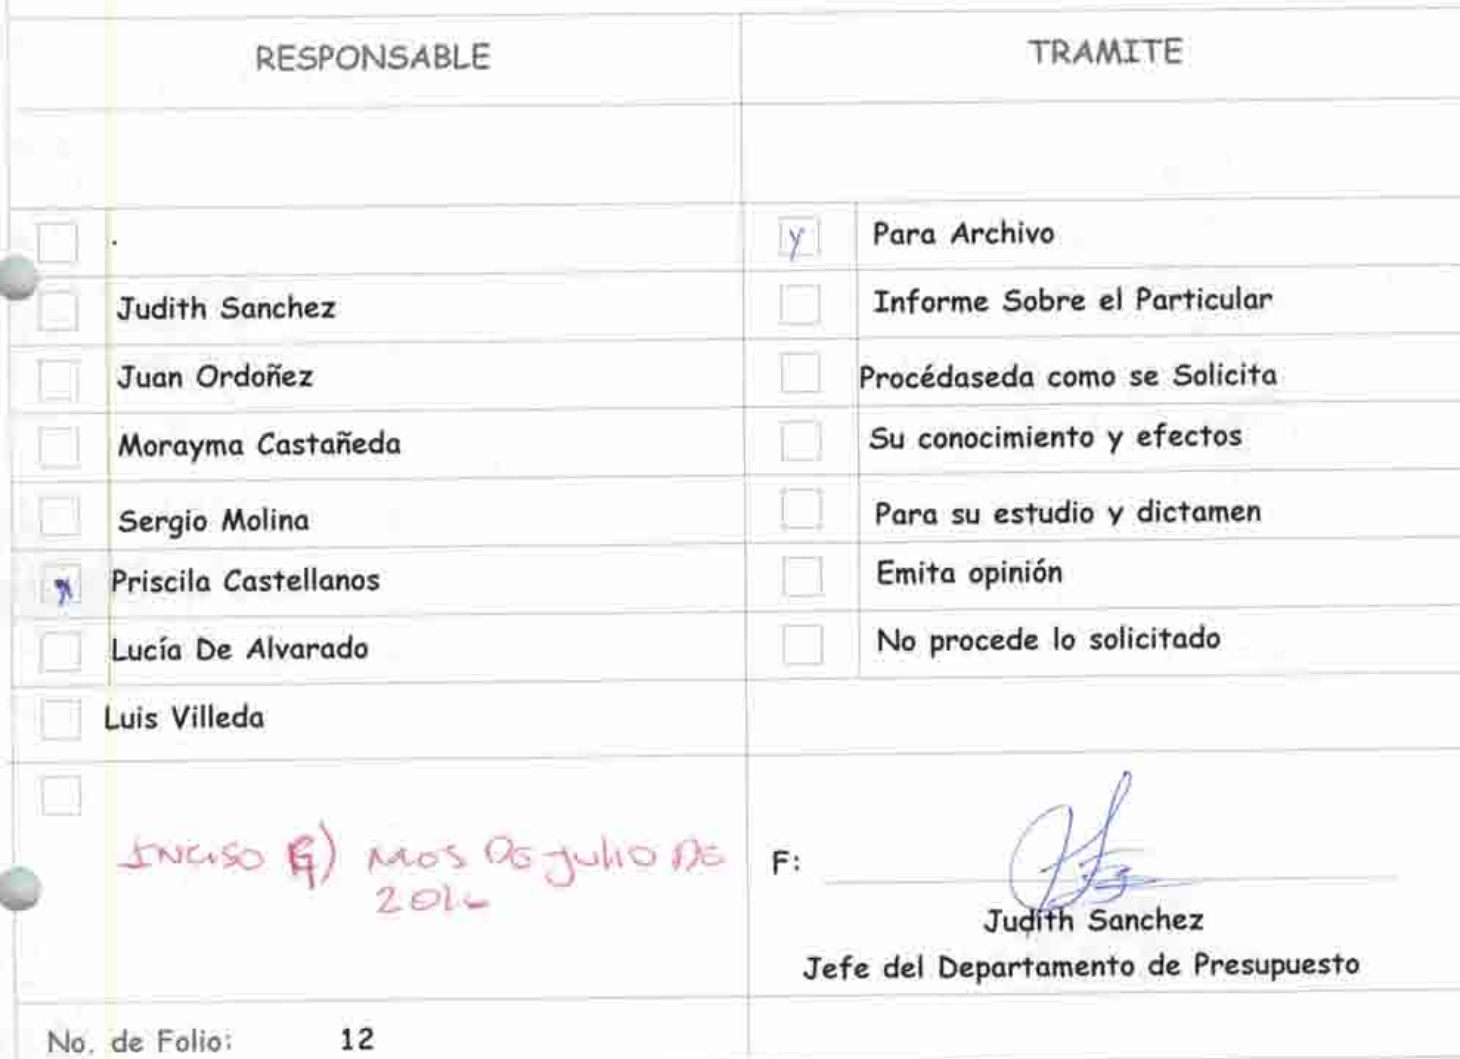 RESPONSABLE
TRAMITE
Para Archivo
Judith Sanchez
Informe Sobre el Particular
Juan Ordoñez
Procédaseda como se Solicita
Morayma Castañeda
Su conocimiento y efectos
Sergio Molina
Para su estudio y dictamen
Priscila Castellanos
Emita opinión
Lucía De Alvarado
No procede lo solicitado
Luis Villeda
INCISO G) MES DE JULIO DE
F:
Judith Sanchez
Jefe del Departamento de Presupuesto
No. de Folio: 12